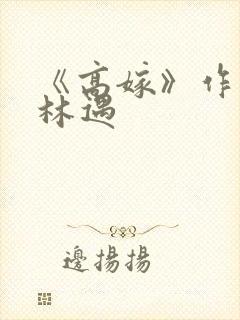 《高嫁》作
林遇
邊揚揚